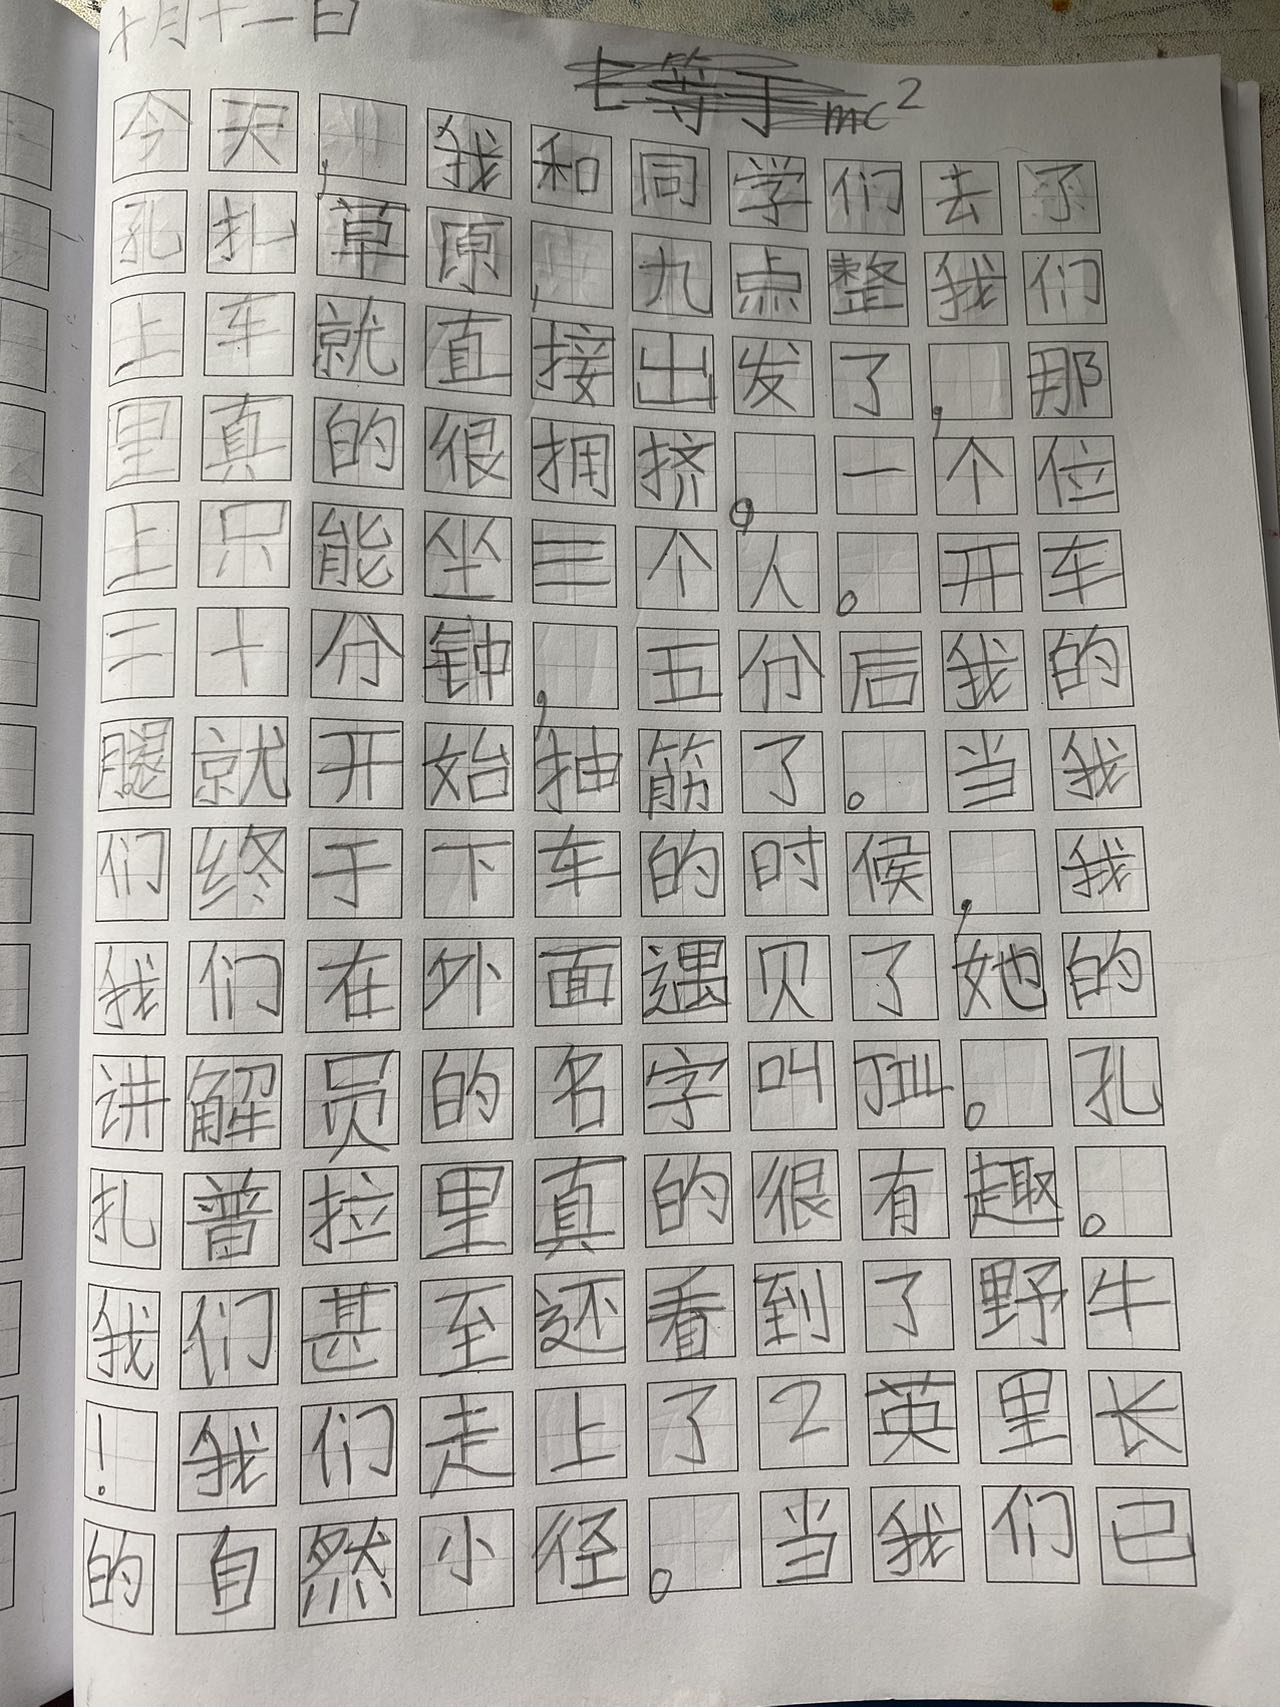 十月十一日
七等于mc²
今天，我和同学们去了
孔扎草原，九点整我们
上车就直接出发了，那
里真的很拥挤。一个位
上只能坐三个人。开车
二十分钟，五分后我的
腿就开始抽筋了。当我
们终于下车的时候，我
我们在外面遇贝了她的
讲解员的名字叫Jill。孔
扎普拉里真的很有趣。
我们甚至还看到了野牛
！我们走上了2英里长
的自然小径。当我们已